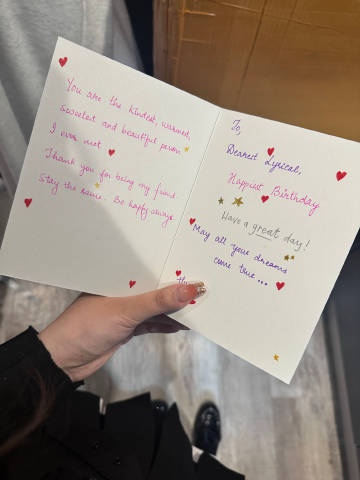 You are the kindest, warmed,
sweetest and beautiful person
I ever met
Thank you for being my friend
Stay the same. Be happy always
To,
Dearest Lyrical,
Happiest Birthday
Have a great day!
May all your dreams
come true...